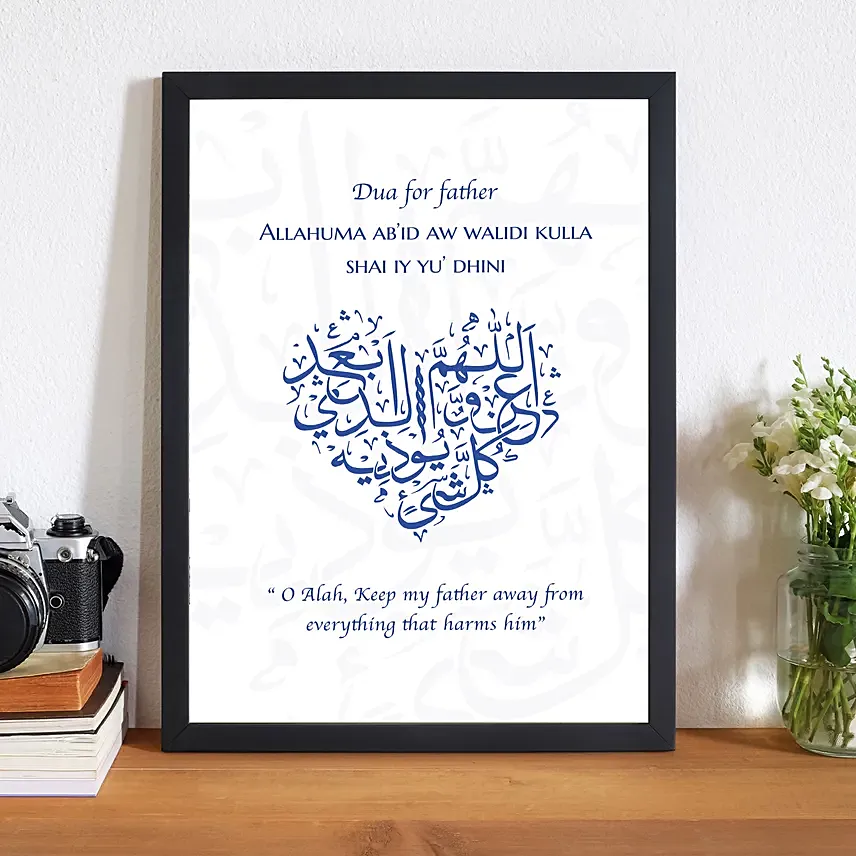 Dua for father
ALLAHUMA AB'ID AW WALIDI KULLA
SHAI IY YU' DHINI
اللّهُمَّ أبعد
والدي
كُلَّ يُوذيه
شيئ
“ O Alah, Keep my father away from
everything that harms him”